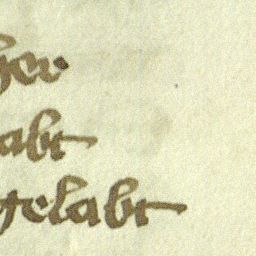 her
abt
gelabt